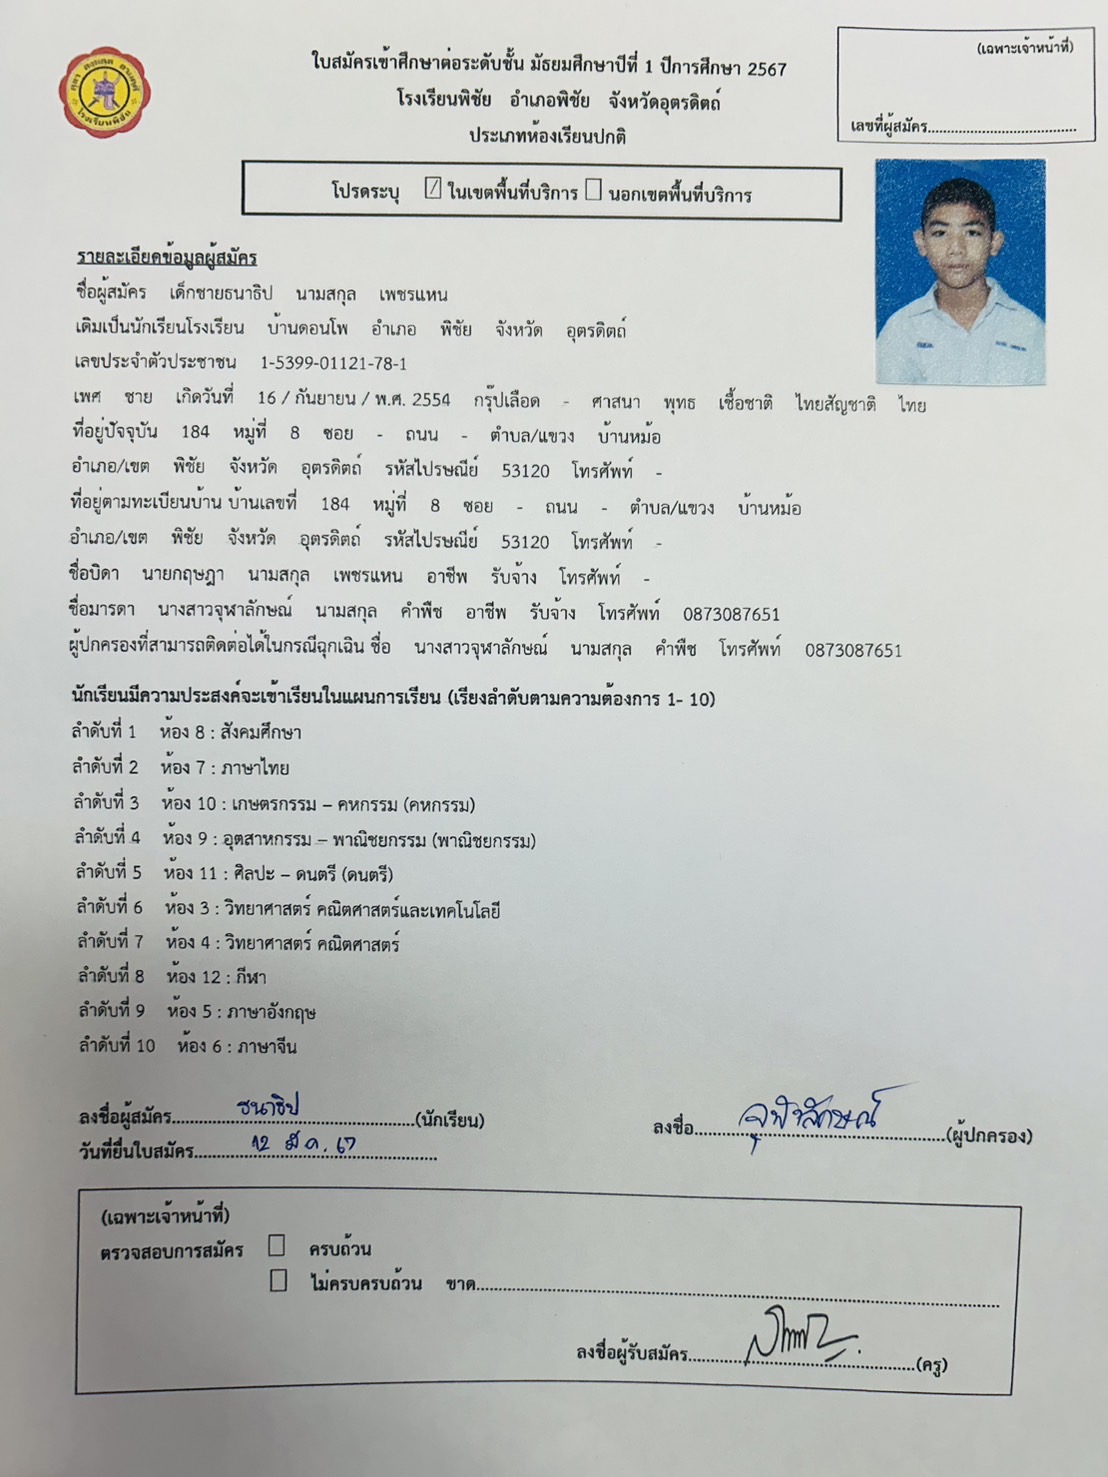 (เฉพาะเจ้าหน้าที่)
เลขที่ผู้สมัคร
ใบสมัครเข้าศึกษาต่อระดับชั้น มัธยมศึกษาปีที่ 1 ปีการศึกษา 2567
โรงเรียนพิชัย อำเภอพิชัย จังหวัดอุตรดิตถ์
ประเภทห้องเรียนปกติ
โรงเรียนพิชัย
โปรดระบุ ☑ ในเขตพื้นที่บริการ ☐ นอกเขตพื้นที่บริการ
รายละเอียดข้อมูลผู้สมัคร
ชื่อผู้สมัคร เด็กชายธนาธิป นามสกุล เพชรแหน
เดิมเป็นนักเรียนโรงเรียน บ้านดอนโพ อำเภอ พิชัย จังหวัด อุตรดิตถ์
เลขประจำตัวประชาชน 1-5399-01121-78-1
เพศ ชาย เกิดวันที่ 16 / กันยายน / พ.ศ. 2554 กรุ๊ปเลือด - ศาสนา พุทธ เชื้อชาติ ไทยสัญชาติ ไทย
ที่อยู่ปัจจุบัน 184 หมู่ที่ 8 ซอย - ถนน - ตำบล/แขวง บ้านหม้อ
อำเภอ/เขต พิชัย จังหวัด อุตรดิตถ์ รหัสไปรษณีย์ 53120 โทรศัพท์ -
ที่อยู่ตามทะเบียนบ้าน บ้านเลขที่ 184 หมู่ที่ 8 ซอย - ถนน - ตำบล/แขวง บ้านหม้อ
อำเภอ/เขต พิชัย จังหวัด อุตรดิตถ์ รหัสไปรษณีย์ 53120 โทรศัพท์ -
ชื่อบิดา นายกฤษฎา นามสกุล เพชรแหน อาชีพ รับจ้าง โทรศัพท์ -
ชื่อมารดา นางสาวจุฬาลักษณ์ นามสกุล คำพืช อาชีพ รับจ้าง โทรศัพท์ 0873087651
ผู้ปกครองที่สามารถติดต่อได้ในกรณีฉุกเฉิน ชื่อ นางสาวจุฬาลักษณ์ นามสกุล คำพืช โทรศัพท์ 0873087651
นักเรียนมีความประสงค์จะเข้าเรียนในแผนการเรียน (เรียงลำดับตามความต้องการ 1- 10)
ลำดับที่ 1 ห้อง 8 : สังคมศึกษา
ลำดับที่ 2 ห้อง 7 : ภาษาไทย
ลำดับที่ 3 ห้อง 10 : เกษตรกรรม – คหกรรม (คหกรรม)
ลำดับที่ 4 ห้อง 9 : อุตสาหกรรม – พาณิชยกรรม (พาณิชยกรรม)
ลำดับที่ 5 ห้อง 11 : ศิลปะ – ดนตรี (ดนตรี)
ลำดับที่ 6 ห้อง 3 : วิทยาศาสตร์ คณิตศาสตร์และเทคโนโลยี
ลำดับที่ 7 ห้อง 4 : วิทยาศาสตร์ คณิตศาสตร์
ลำดับที่ 8 ห้อง 12 : กีฬา
ลำดับที่ 9 ห้อง 5 : ภาษาอังกฤษ
ลำดับที่ 10 ห้อง 6 : ภาษาจีน
ลงชื่อผู้สมัคร ธนาธิป (นักเรียน)
ลงชื่อ จุฬาลักษณ์ (ผู้ปกครอง)
วันที่ยื่นใบสมัคร 12 มี.ค. 67
(เฉพาะเจ้าหน้าที่)
ตรวจสอบการสมัคร ☐ ครบถ้วน
☐ ไม่ครบครบถ้วน ขาด
ลงชื่อผู้รับสมัคร (ครู)